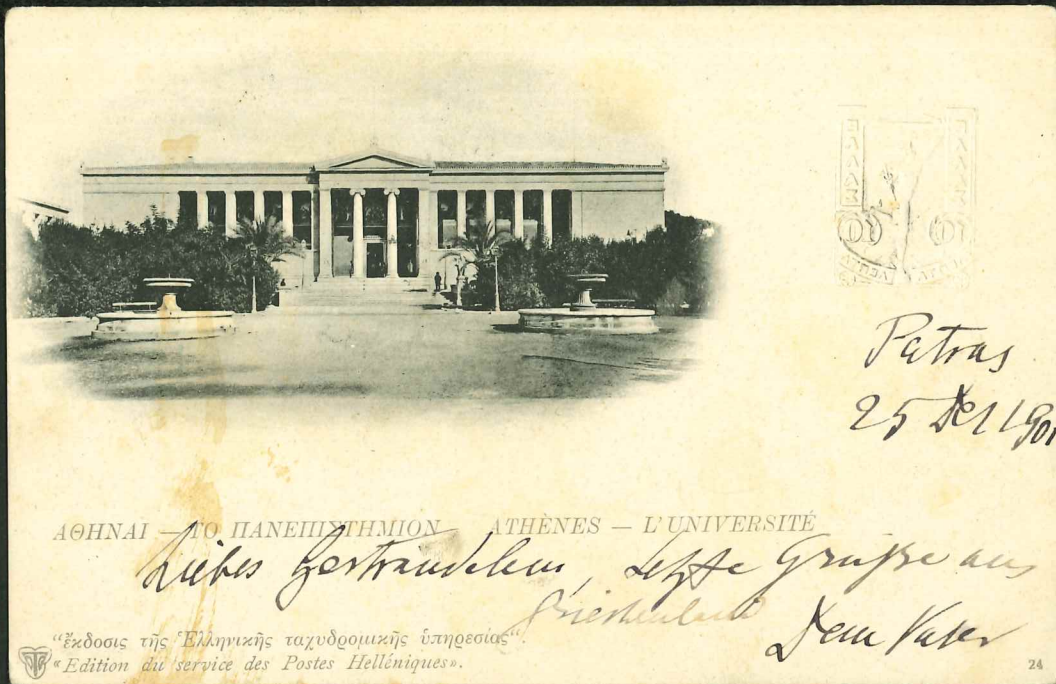 Patras
25 Dez 1901
ΑΘΗΝΑΙ — ΤΟ ΠΑΝΕΠΙΣΤΗΜΙΟΝ ATHÈNES — L'UNIVERSITÉ
Liebes Gertraudchen, letzte Grüße aus
Griechenland
Dein Vater
“ἔκδοσις τῆς Ἑλληνικῆς ταχυδρομικῆς ὑπηρεσίας“.
«Edition du service des Postes Helléniques».
24